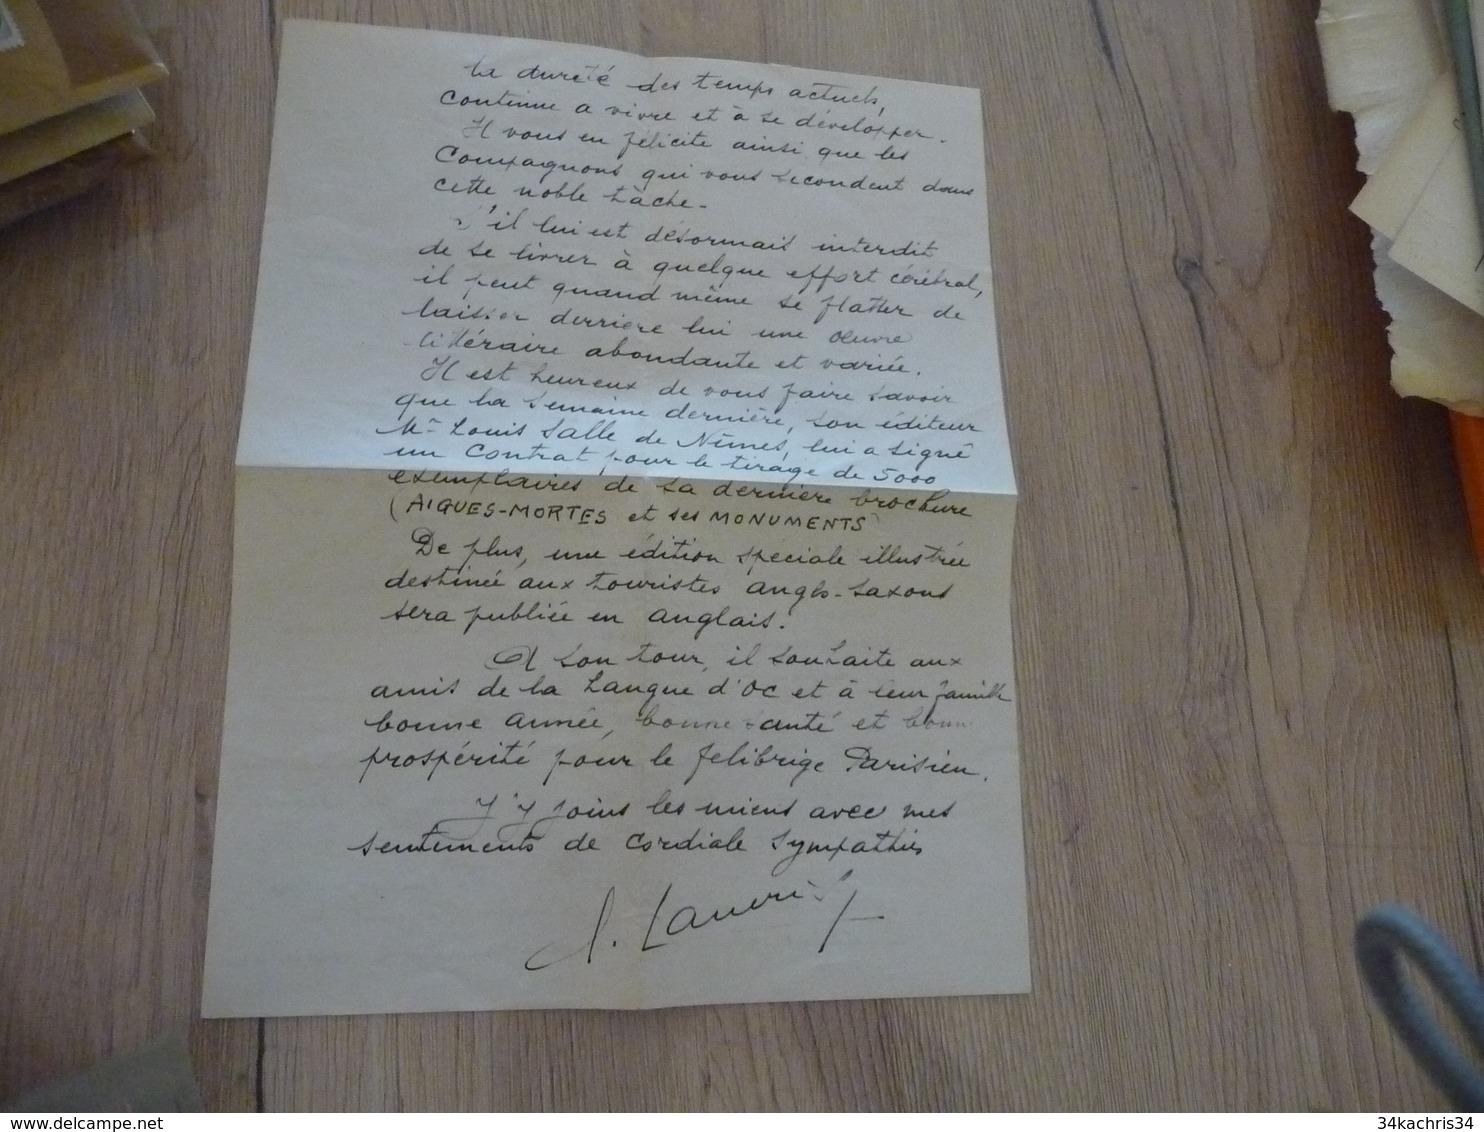 la dureté des temps actuels,
continue a vivre et à se développer.
Il vous en félicite ainsi que les
Compagnons qui vous secondent dans
cette noble tâche.
S'il lui est désormais interdit
de se livrer à quelque effort cérébral,
il peut quand même se flatter de
laisser derrière lui une Oeuvre
littéraire abondante et variée.
Il est heureux de vous faire savoir
que la semaine dernière, son éditeur
Mr Louis Salle de Nîmes, lui a signé
un Contrat pour le tirage de 5000
exemplaires de sa dernière brochure
(AIGUES-MORTES et ses MONUMENTS)
De plus, une édition spéciale illustrée
destinée aux touristes anglo-saxons
sera publiée en anglais.
A son tour, il souhaite aux
amis de la Langue d'Oc et à leur famille
bonne année, bonne santé et bonne
prospérité pour le felibrige Parisien.
J'y joins les miens avec mes
sentiments de cordiale sympathie
34kachris34